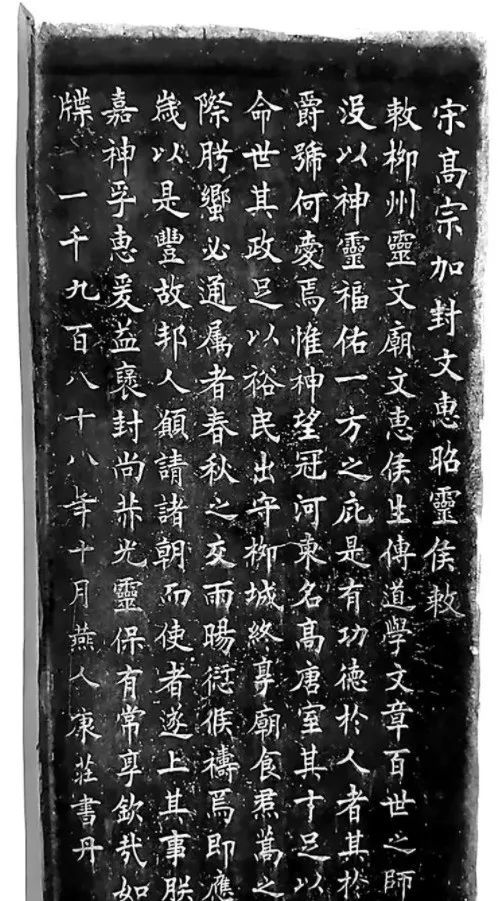 宋高宗加封文惠昭靈侯敕
敕柳州靈文廟文惠侯生傳道學文章百世之師
沒以神靈福佑一方之庇是有功德於人者其於
爵號何愛焉惟神望冠河東名高唐室其才足以
命世其政足以裕民出守柳城終享廟食焄蒿之
際肹蠁必通属者春秋之交雨暘愆候禱焉即應
歲以是豐故邦人顧請諸朝而使者遂上其事朕
嘉神孚惠爰益褒封尚茀光靈保有常享欽哉如
牒 一千九百八十八年十月燕人康莊書丹